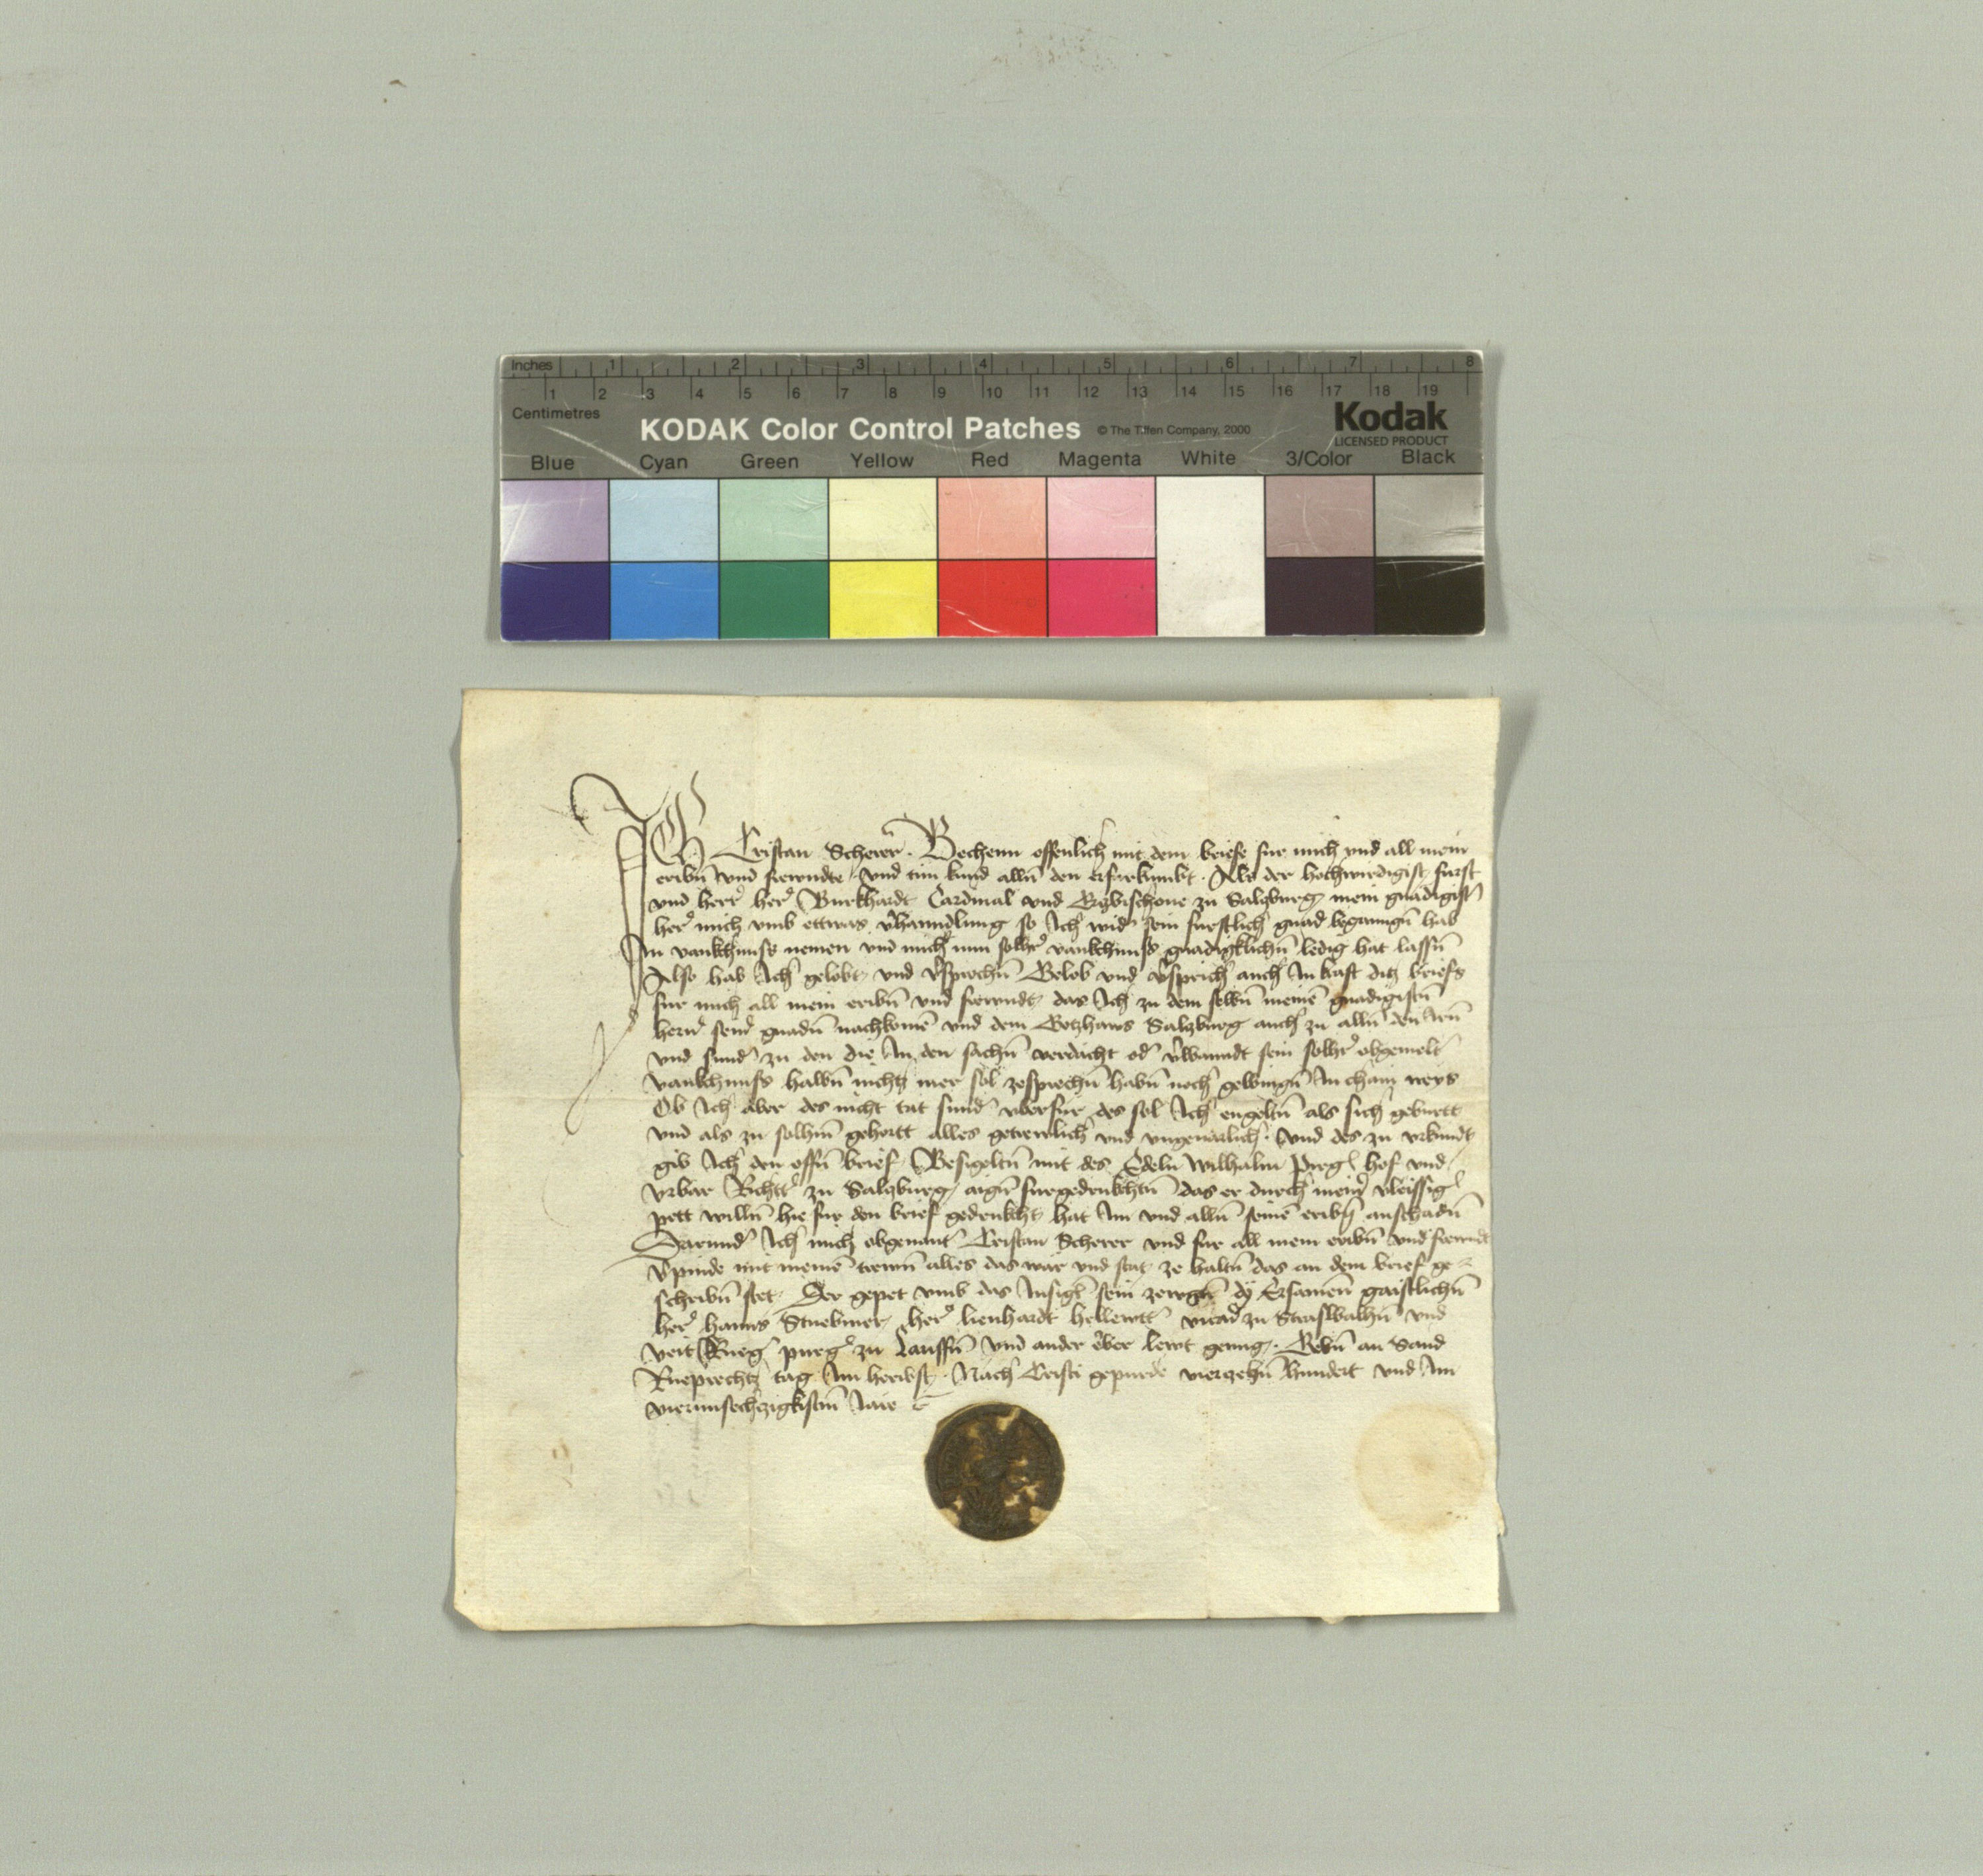 Inches 1 2 3 4 5 6 7 8
1 2 3 4 5 6 7 8 9 10 11 12 13 14 15 16 17 18 19
Centimetres
KODAK Color Control Patches © The Tiffen Company, 2000 Kodak
LICENSED PRODUCT
Blue Cyan Green Yellow Red Magenta White 3/Color Black
Ich Cristan Scherer. Bechenn offenlich mit dem briefe fur mich vnd all mein
eribn̄ vnd frewndte vnd tun kund alln̄ den er furkumbt. Als der hochwirdigist furst
vnd herr her Burkhardt Cardinal vnd Erzbischoue zu Salzburg mein gnadigist
her mich vmb ettwas v̄hanndlung so Ich wid sein furstlich gnad begangn̄ hab
In vankchnuss nemen vnd mich nun solhr vankchnuss gnadigklichn̄ ledig hat lassn̄
Also hab Ich gelobt vnd v̄sprochn̄ Gelob vnd v̄sprich auch In kraft ditz briefs
fur mich all mein eribn̄ vnd frewndt das Ich zu dem selbn̄ meinē gnadigistn̄
hern seinr gnadn̄ nachkomē vnd dem Gotzhaws Salzburg auch zu alln̄ den Irn̄
vnd sund zu den die In den sachn̄ verdacht od v̄wanndt sein solhr obgemelt
vankchnuss halbn̄ nichtz mer sol zesprechn̄ habn̄ noch gewingn̄ In chain weys
Ob Ich aber des nicht tät sund vberfur des sol Ich engeltn̄ als sich geburtt
vnd als zu solhm̄ gehortt alles getrewlich vnd vngeuärlich. Vnd des zu vrkundt
gib Ich den offn̄ brief Besigeltn̄ mit des Edeln Wilhalm hof vnd
vrbar Richtr zu Salzburg aign̄ furgedrukchtn̄ das er durch meinr vleissig
pett willn̄ hie fur den brief gedrukcht hat Im vnd alln̄ seinē eribn̄ anschadn̄
Darund Ich mich obgenant Cristan Scherer vnd fur all mein eribn̄ vnd frewndt
v̄pinde mit meinē trewn̄ alles das war vnd stät ze haltn̄ das an dem brief ge-
schribn̄ stet. Der gepet vmb das Insigl sein zewgn̄ dy Ersamenn̄ gaistlichn̄
her hanns her lienhardt zu Straswalhn̄ vnd
veit purg zu Lauffn̄ vnd ander erber lewt genug. Gebn̄ an Sand
Rueprechtz tag Im heribst. Nach Cristi gepurde vierzehn̄ hundert vnd Im
vierunsechzigkistn̄ Jare